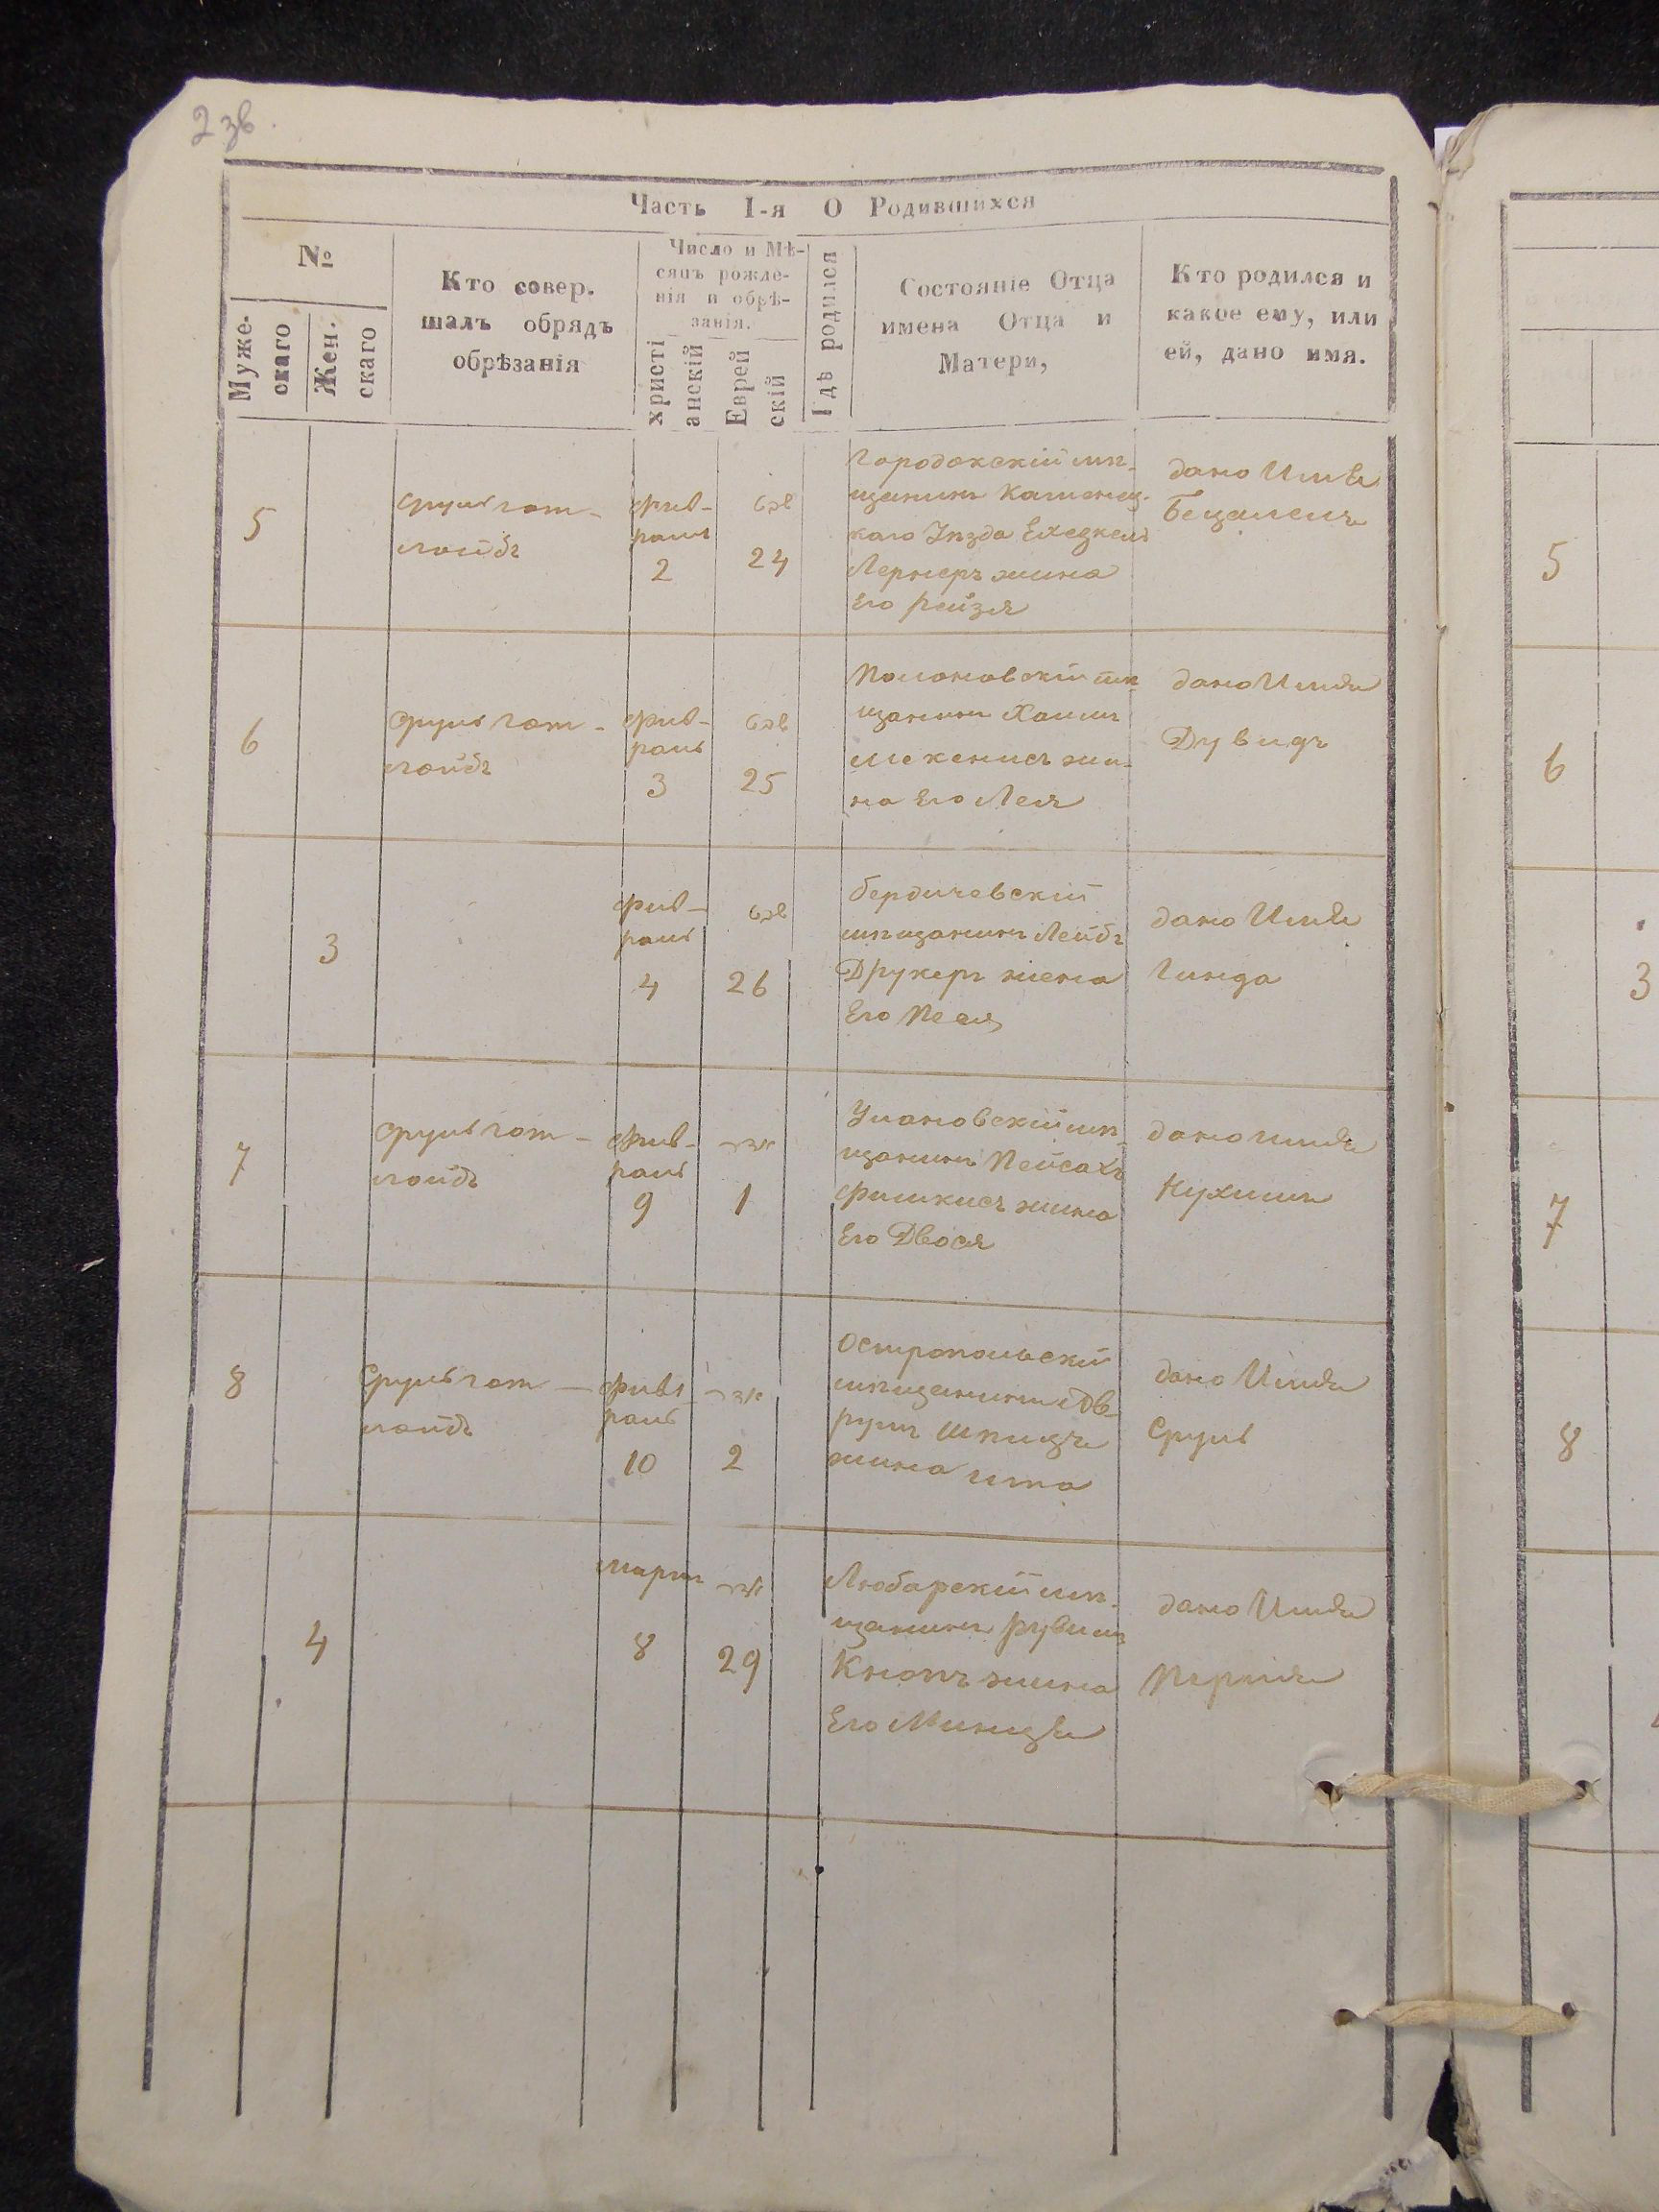 2 зв.
Часть I-я О Родившихся
№
Муже-
скаго
Жен.
скаго
Кто совер.
шалъ обрядъ
обрѣзанія
Число и Мѣ-
сяцъ рожде-
нія и обрѣ-
занія.
христі
анскій
Еврей
скій
Гдѣ родился
Состояніе Отца
имена Отца и
Матери,
Кто родился и
какое ему, или
ей, дано имя.
5
Сруль гот-
лойбъ
фив-
раль
2
24
Городокскій мѣ-
щанинъ Каменец-
каго Уѣзда Ехезкель
Лернеръ жина
Его Рейзя
дано Имѣ
Бецалель
6
Сруль гот-
лойбъ
фив-
раль
3
25
Полоновскій мѣ-
щанинъ Хаимъ
жи-
на Его Лея
дано Имя
Дувидъ
3
фив-
раль
4
26
бердичевскій
мѣщанинъ Лейбъ
Друкеръ жена
Его Песя
дано Имя
Гинда
7
Сруль гот-
лойбъ
фив-
раль
9
1
Улановскій мѣ-
щанинъ Пейсахъ
фишкисъ жина
Его Двося
дано имя
Нухимъ
8
Сруль гот-
лойбъ
фив-
раль
10
2
Остропольскій
мѣщанинъ
жина ита
дано Имя
Сруль
4
мартъ
8
29
Любарскій мѣ-
щанинъ Рувинъ
Кнопъ жина
Его Минця
дано Имя
Перля
5
6
3
7
8